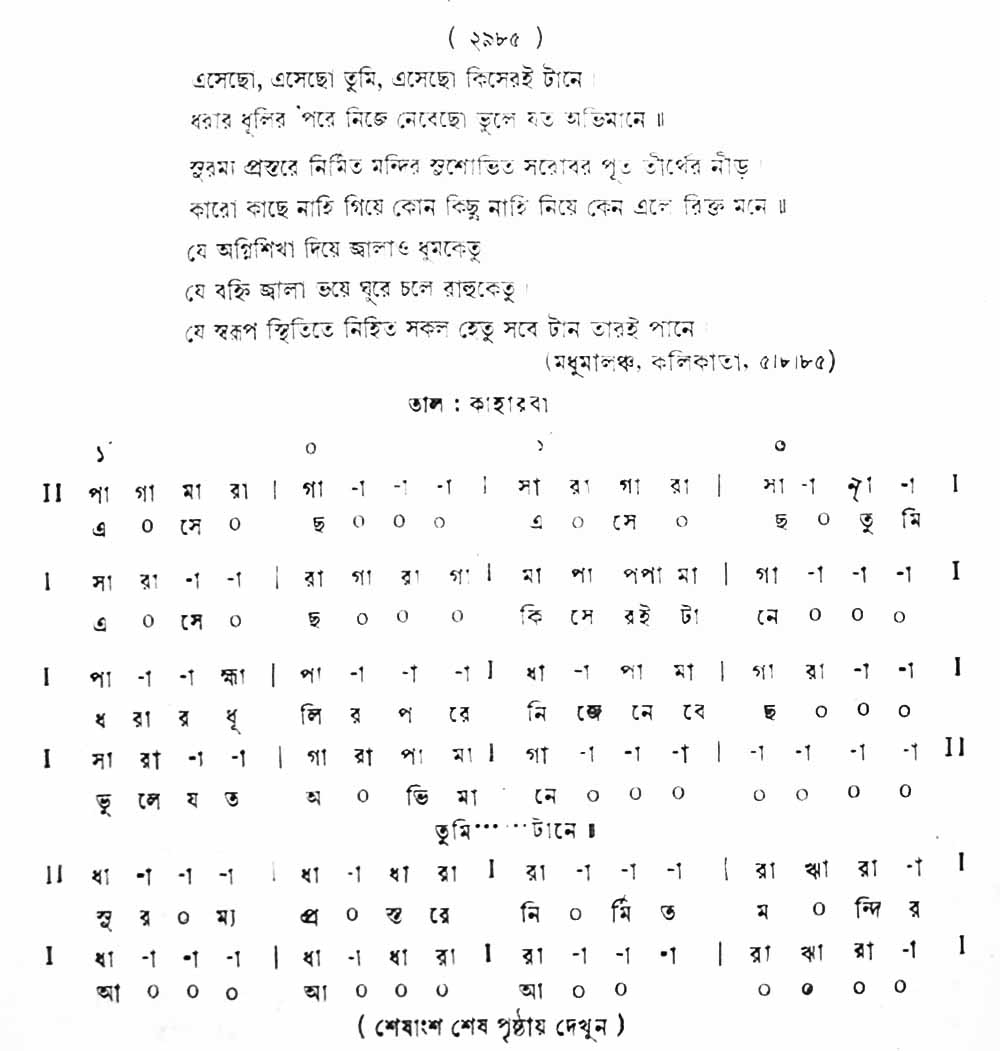 ( ২৯৮৫ )
এসেছো, এসেছো তুমি, এসেছো কিসেরই টানে ।
ধরার ধূলির 'পরে নিজে নেবেছো ভুলে যত অভিমানে ॥
সুরম্য প্রস্তরে নির্মিত মন্দির সুশোভিত সরোবর পূত তীর্থের নীড় ।
কারো কাছে নাহি গিয়ে কোন কিছু নাহি নিয়ে কেন এলে রিক্ত মনে ॥
যে অগ্নিশিখা দিয়ে জ্বালাও ধুমকেতু
যে বহ্নি জ্বালা ভয়ে ঘুরে চলে রাহুকেতু ।
যে স্বরূপ স্থিতিতে নিহিত সকল হেতু সবে টান তারই পানে ।
(মধুমালঞ্চ, কলিকাতা, ৫।৮।৮৫)
তাল : কাহারবা
১ ০ ১ ০
II পা গা মা রা | গা -া -া -া | সা রা গা রা | সা -া ন্া -া I
এ ০ সে ০ ছ ০ ০ ০ এ ০ সে ০ ছ ০ তু মি
I সা রা -া -া | রা গা রা গা I মা পা পপা মা | গা -া -া -া I
এ ০ সে ০ ছ ০ ০ ০ কি সে রই টা নে ০ ০ ০
I পা -া -া হ্মা | পা -া -া -া I ধা -া পা মা | গা রা -া -া I
ধ রা র ধূ লি র প রে নি জে নে বে ছ ০ ০ ০
I সা রা -া -া | গা রা পা মা I গা -া -া -া | -া -া -া -া II
ভু লে য ত অ ০ ভি মা নে ০ ০ ০ ০ ০ ০ ০
তুমি······টানে ॥
II ধা -া -া -া | ধা -া ধা রা I রা -া -া -া | রা ঋা রা -া I
সু র ০ ম্য প্র ০ স্ত রে নি ০ র্মি ত ম ০ ন্দি র
I ধা -া -া -া | ধা -া ধা রা I রা -া -া -া | রা ঋা রা -া I
আ ০ ০ ০ আ ০ ০ ০ আ ০ ০ ০ ০ ০ ০
( শেষাংশ শেষ পৃষ্ঠায় দেখুন )